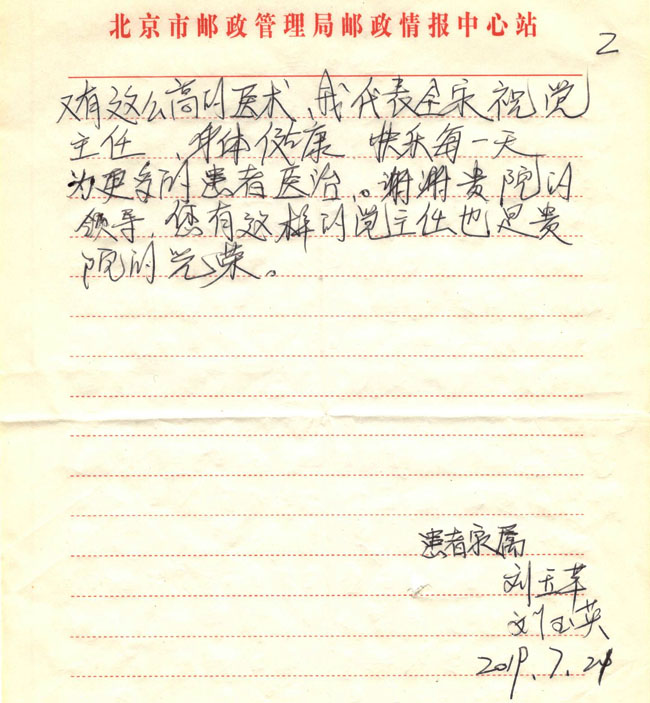 北京市邮政管理局邮政情报中心站
2
又有这么高的医术,我代表全家祝党
主任,身体健康 快乐每一天
为更多的患者医治。谢谢贵院的
领导,您有这样的党主任也是贵
院的光荣。
患者家属
刘玉苹
刘玉英
2019.7.24